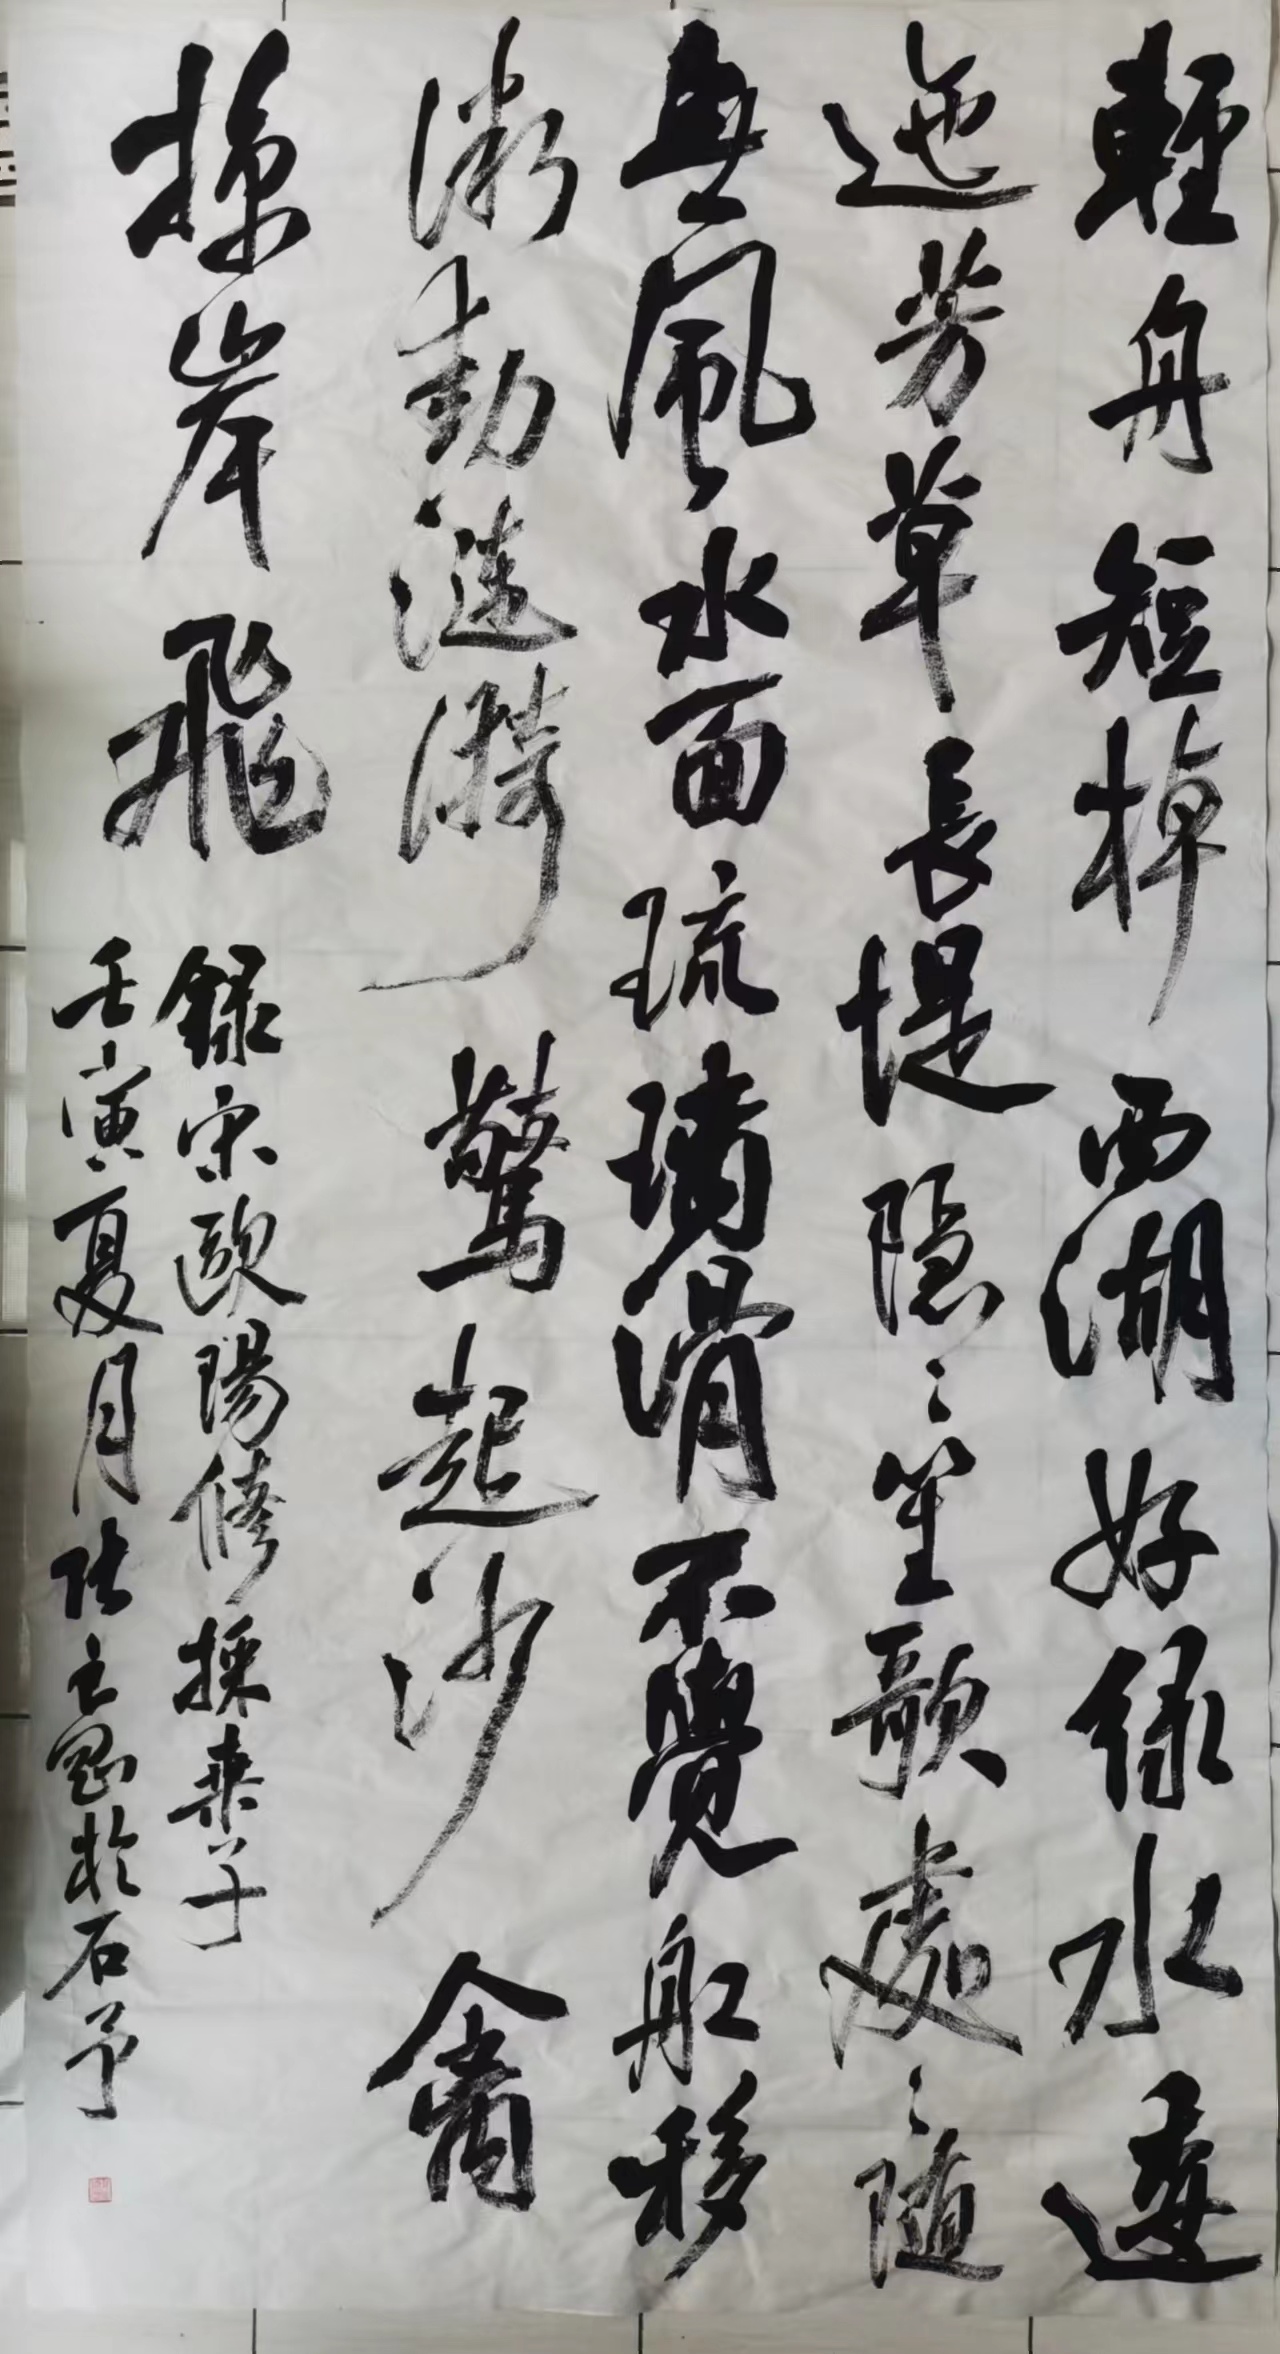 輕舟短棹西湖好綠水逶
迤芳草長堤隱〻笙歌處〻隨
無風水面琉璃滑不覺船移
微動漣漪驚起沙禽
掠岸飛
錄宋歐陽修採桑子
壬寅夏月 於石